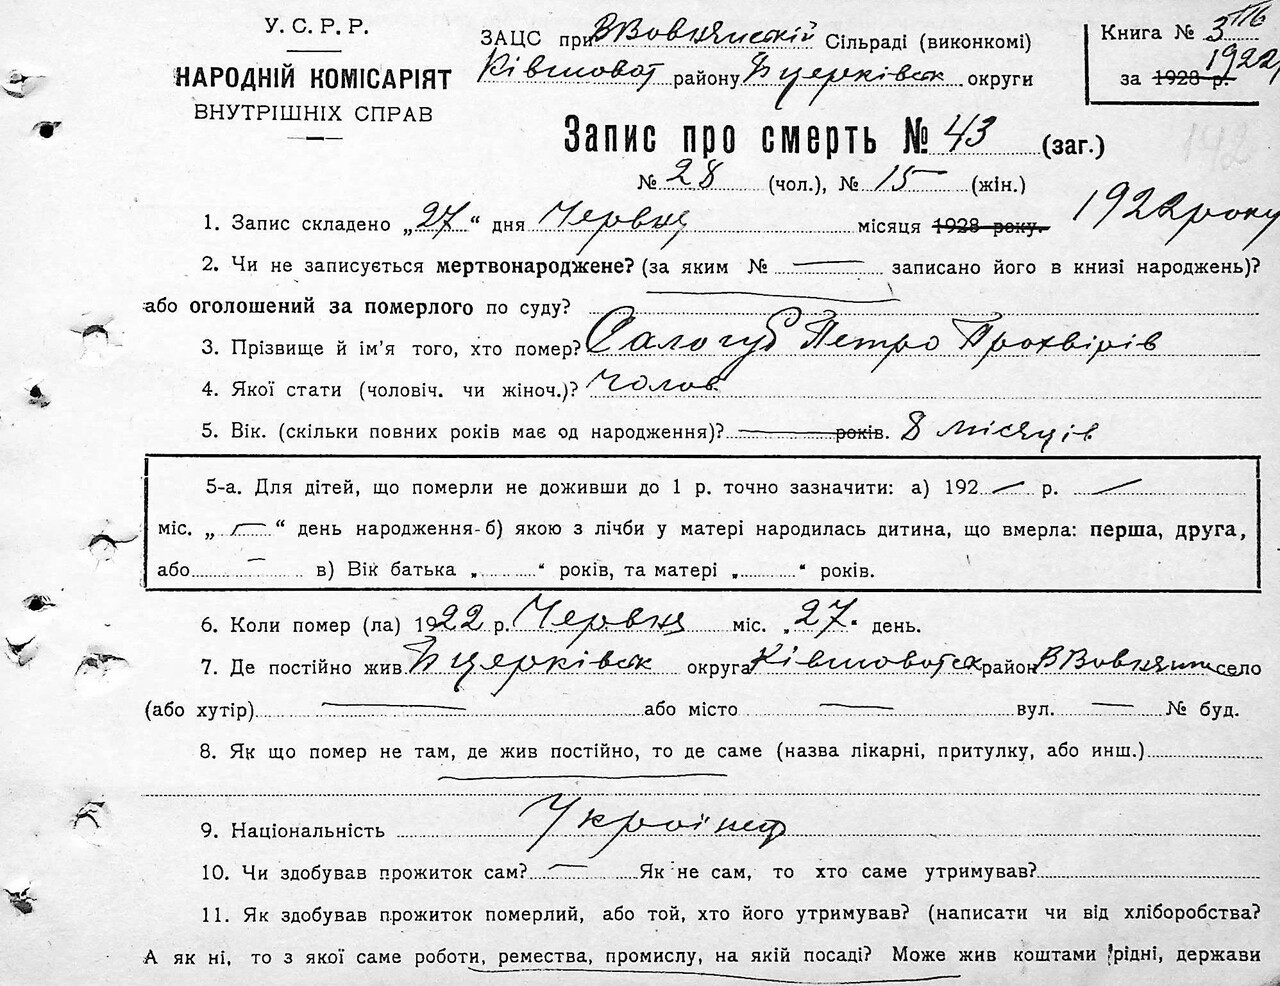 У. С. Р. Р.
НАРОДНІЙ КОМІСАРІЯТ
ВНУТРІШНІХ СПРАВ
ЗАЦС при ВВовнянській Сільраді (виконкомі)
Ківшоват району Бцерківськ округи
Книга № 3
за 1928 р. 1922
Запис про смерть № 43 (заг.)
142
№ 28 (чол.), № 15 (жін.)
1. Запис складено „27“ дня Червня місяця 1928 року. 1922 року
2. Чи не записується мертвонароджене? (за яким № — записано його в книзі народжень)?
або оголошений за померлого по суду?
3. Прізвище й ім’я того, хто помер? Салогуб Петро Прохвирів
4. Якої стати (чоловіч. чи жіноч.)? чолов
5. Вік. (скільки повних років має од народження)? років. 8 місяців
5-а. Для дітей, що померли не доживши до 1 р. точно зазначити: а) 192 — р. —
міс. „ — “ день народження - б) якою з лічби у матері народилась дитина, що вмерла: перша, друга,
або — в) Вік батька „ “ років, та матері „ “ років.
6. Коли помер (ла) 1922 р. Червня міс. „27“ день.
7. Де постійно жив Бцерківськ округа Ківшоватськ район ВВовнянськ село
(або хутір) — або місто — вул. — № буд.
8. Як що помер не там, де жив постійно, то де саме (назва лікарні, притулку, або инш.)
9. Національність Українец
10. Чи здобував прожиток сам? — Як не сам, то хто саме утримував?
11. Як здобував прожиток померлий, або той, хто його утримував? (написати чи від хліборобства?
А як ні, то з якої саме роботи, ремества, промислу, на якій посаді? Може жив коштами рідні, держави